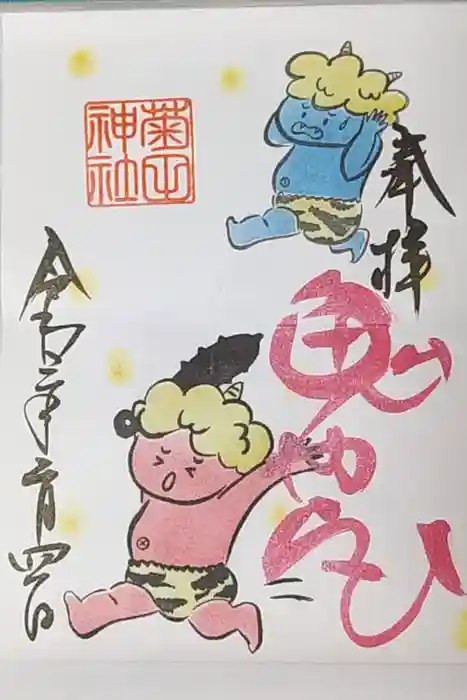 奉拝
鬼やらひ
菊田神社
令和年二月四日